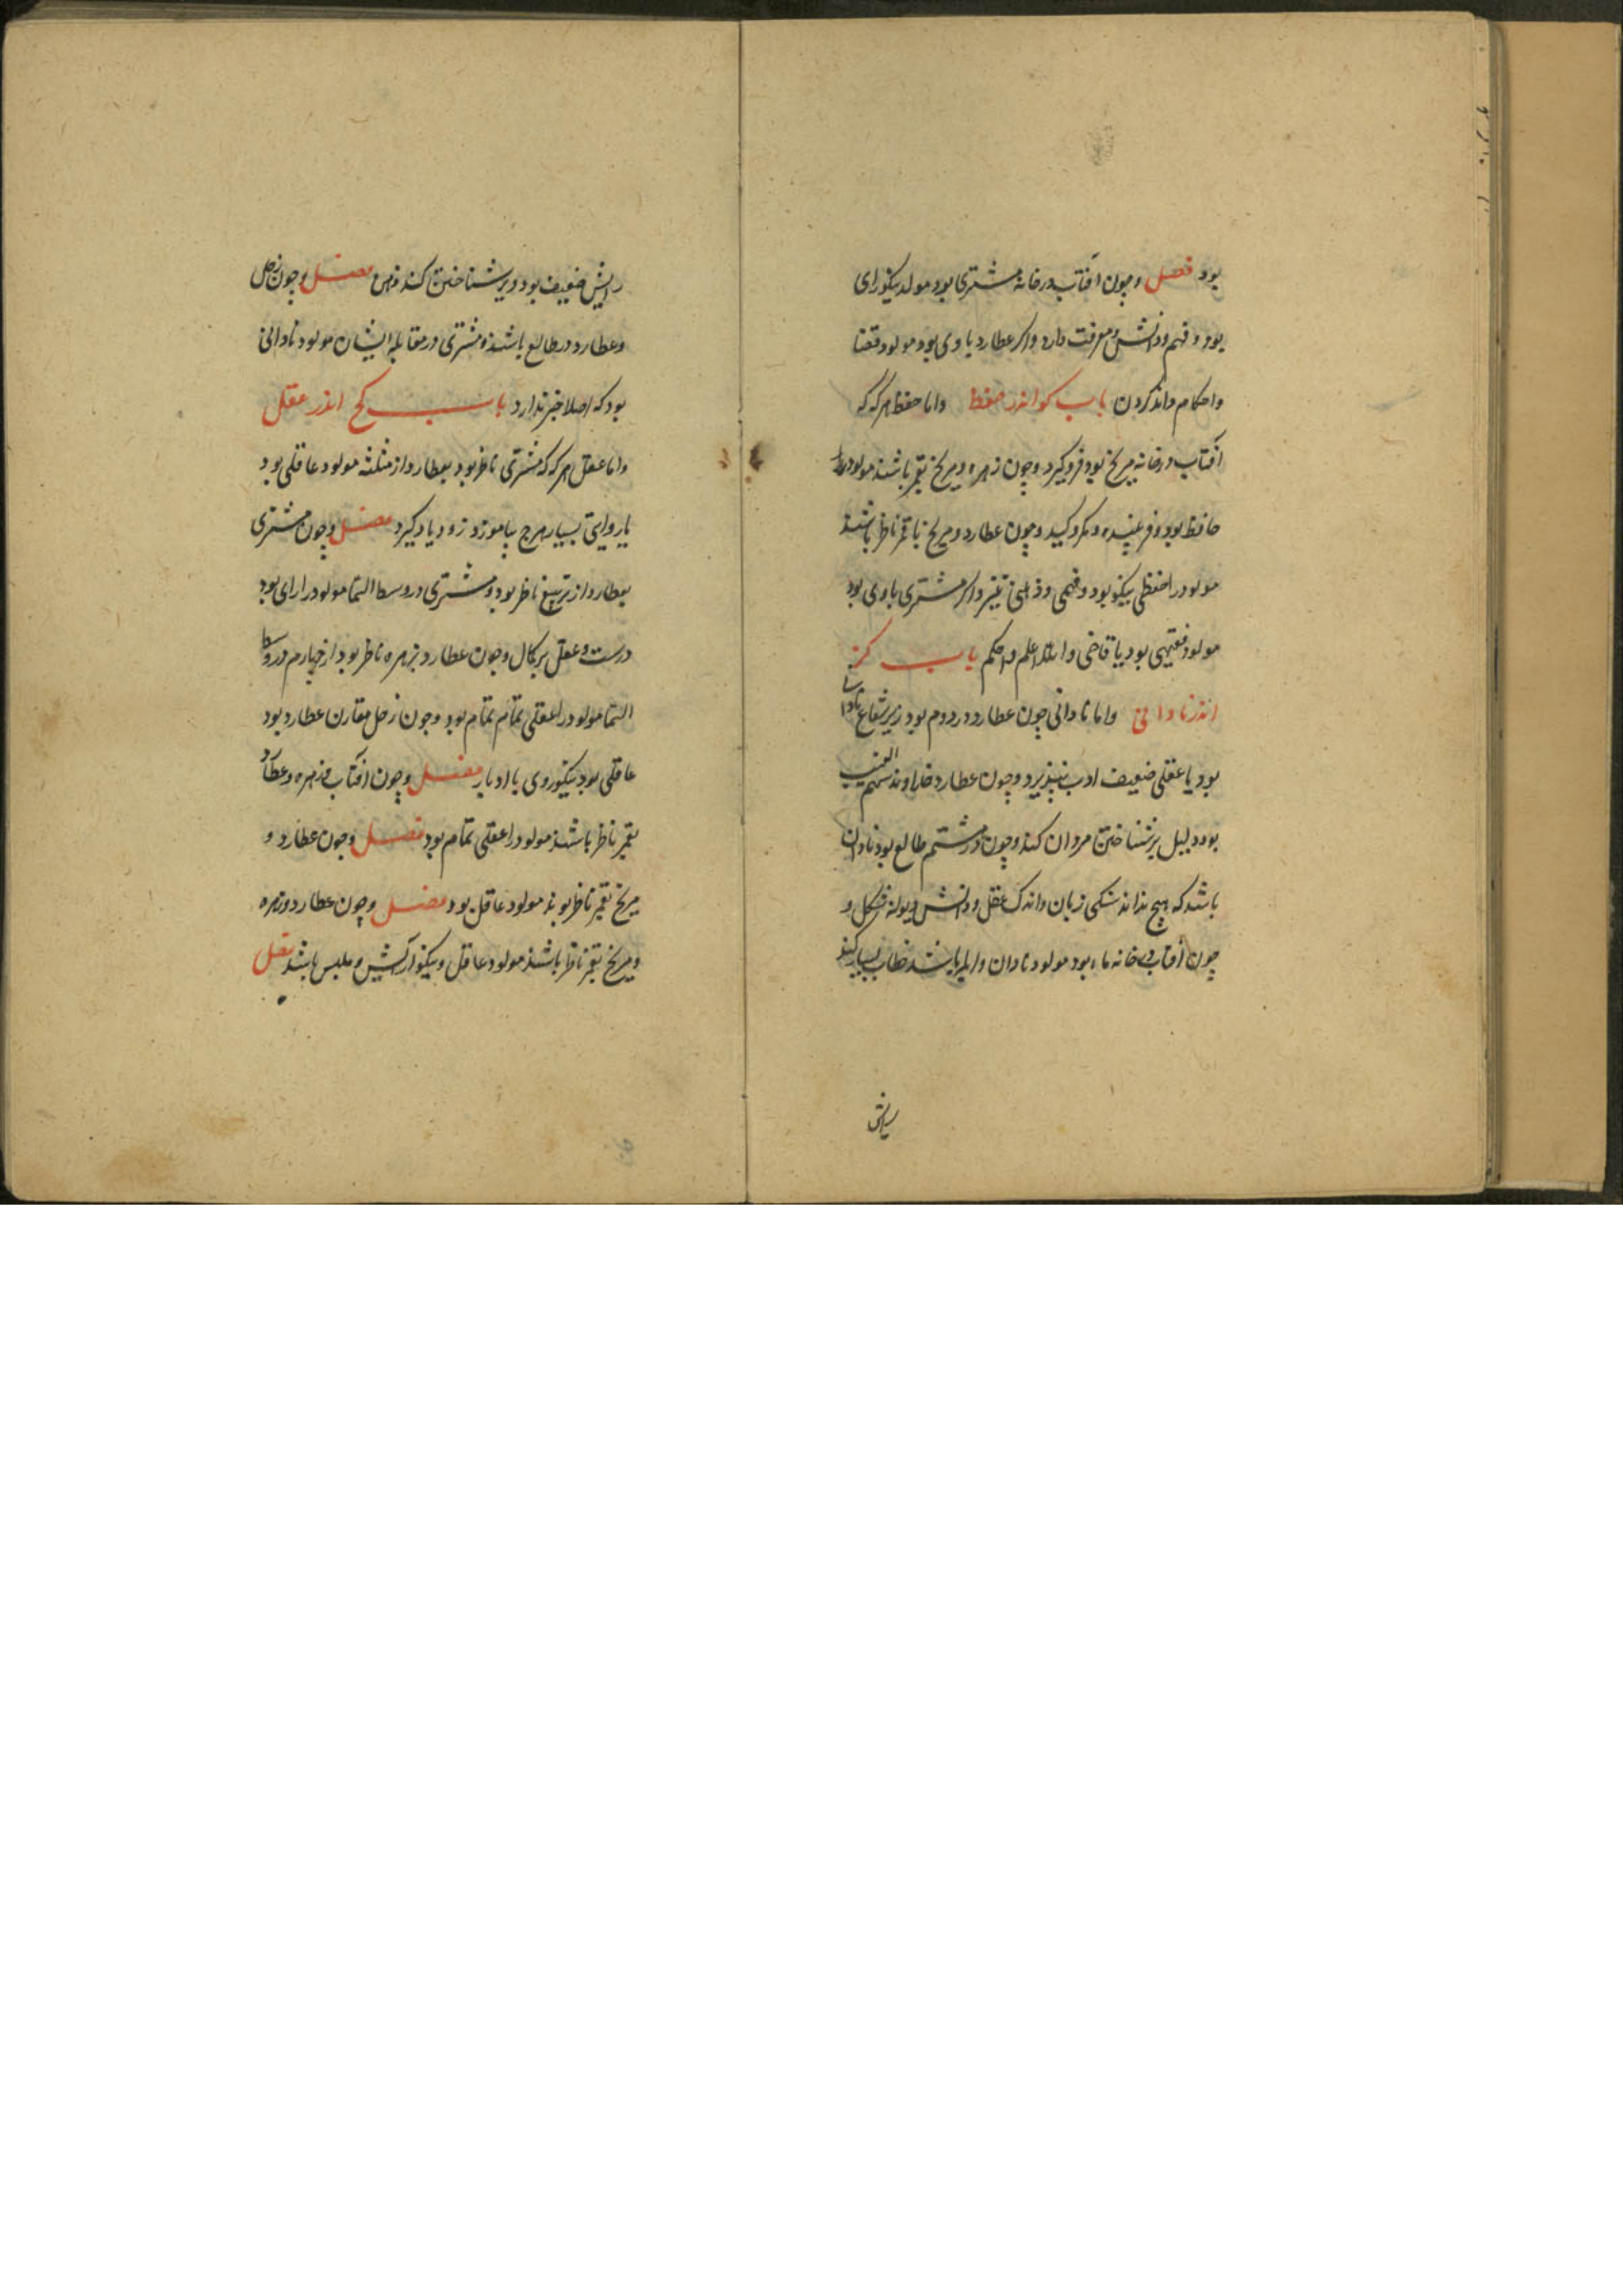 بود فصل و چون آفتاب در خانه مشتری بود مولد نیکورای
بود و فهم و دانش و معرفت دارد و اگر عطارد با وی بود مولود قضا
و احکام داند کردن باب کو اندر حفظ و اما حفظ هر که که
آفتاب در خانه مریخ بود فروگیرد و چون زهره و مریخ بقمر باشند مولود را
حافظ بود و فریبنده و مکر و کید و چون عطارد و مریخ با قمر ناظر باشند
مولود را حفظی نیکو بود و فهمی و ذهنی تیز و اگر مشتری با وی بود
مولود فقیهی بود یا قاضی و الله اعلم و احکم باب کز
اندر نادانی و اما نادانی چون عطارد در دوم بود زیر شعاع نادان
بود یا عقلی ضعیف ادب نپذیرد و چون عطارد خداوند سهم الغیب
بود دلیل بر شناختن مردان کند و چون در ششم طالع بود نادان
باشد که هیچ نداند زبان و اندک عقل و دانش و
چون آفتاب در خانه ماه بود مولود نادان و ابله باشد خطا بسیار کند
رایش
رایش ضعیف بود و دیر شناختن کند فصل و چون زحل
و عطارد در طالع باشند و مشتری در مقابله ایشان مولود نادانی
بود که اصلا خبر ندارد باب کح اندر عقل
و اما عقل هر که که مشتری ناظر بود بعطارد از مثلثه مولود عاقلی بود
با روایتی بسیار هرچ بیاموزد زود یاد گیرد فصل و چون مشتری
بعطارد از تربیع ناظر بود و مشتری در وسط السما مولود را رای بود
درست و عقل بر کمال و چون عطارد بزهره ناظر بود از چهارم در وسط
السما مولود را عقلی تمام تمام بود و چون زحل مقارن عطارد بود
عاقلی بود نیکوروی با ادبار فصل و چون آفتاب و زهره و عطارد
بقمر ناظر باشند مولود را عقلی تمام بود فصل و چون عطارد و
مریخ بقمر ناظر بوند مولود عاقل بود فصل و چون عطارد و زهره
و مریخ بقمر ناظر باشند مولود عاقل و نیکو آرایش و ملبس باشد فصل